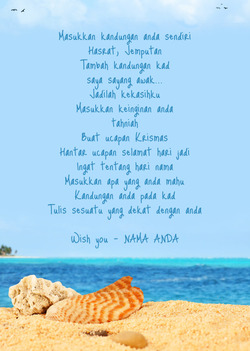 Masukkan kandungan anda sendiri
Hasrat, Jemputan
Tambah kandungan kad
saya sayang awak...
Jadilah kekasihku
Masukkan keinginan anda
tahniah
Buat ucapan Krismas
Hantar ucapan selamat hari jadi
Ingat tentang hari nama
Masukkan apa yang anda mahu
Kandungan anda pada kad
Tulis sesuatu yang dekat dengan anda
Wish you - NAMA ANDA